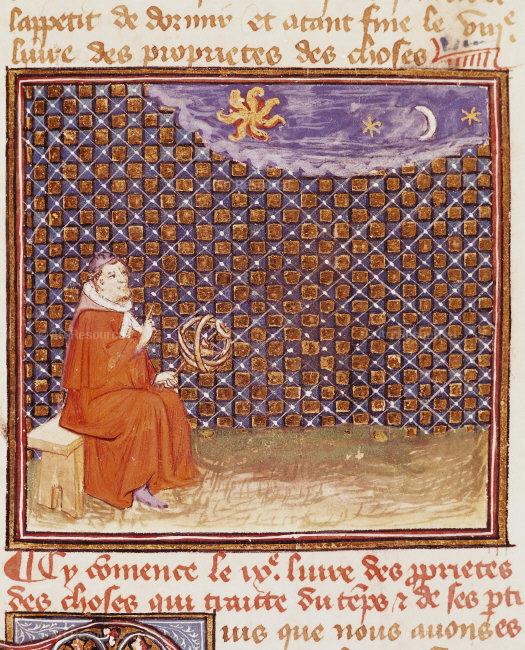 lappetit de dormir et atant fine le viii.e
livre des proprietes des choses
Cy cōmence le ix.e livre des ꝓprietes
des choses qui traitte du tēps ⁊ de ses pti
ues que nous auons es